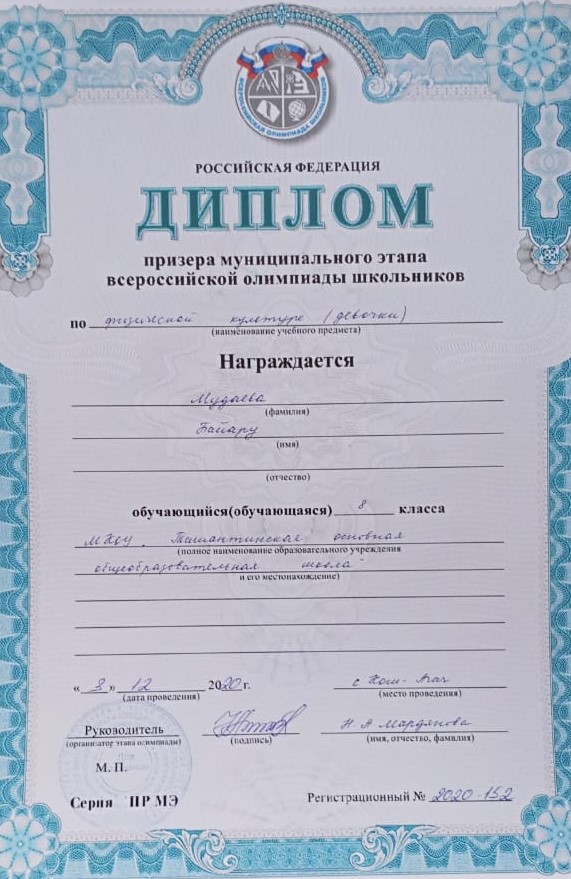 ВСЕРОССИЙСКАЯ ОЛИМПИАДА ШКОЛЬНИКОВ
РОССИЙСКАЯ ФЕДЕРАЦИЯ
ДИПЛОМ
призера муниципального этапа
всероссийской олимпиады школьников
по физической культуре (девочки)
(наименование учебного предмета)
Награждается
Мудаева
(фамилия)
Байару
(имя)
(отчество)
обучающийся(обучающаяся) 8 класса
МКОУ Ташантинская основная
(полное наименование образовательного учреждения
общеобразовательная школа
и его местонахождение)
«3» 12 2020 г. с Кош-Агач
(дата проведения) (место проведения)
Руководитель Н. А Мардянова
(организатор этапа олимпиады) (подпись) (имя, отчество, фамилия)
М. П.
Серия ПР МЭ Регистрационный № 2020-152